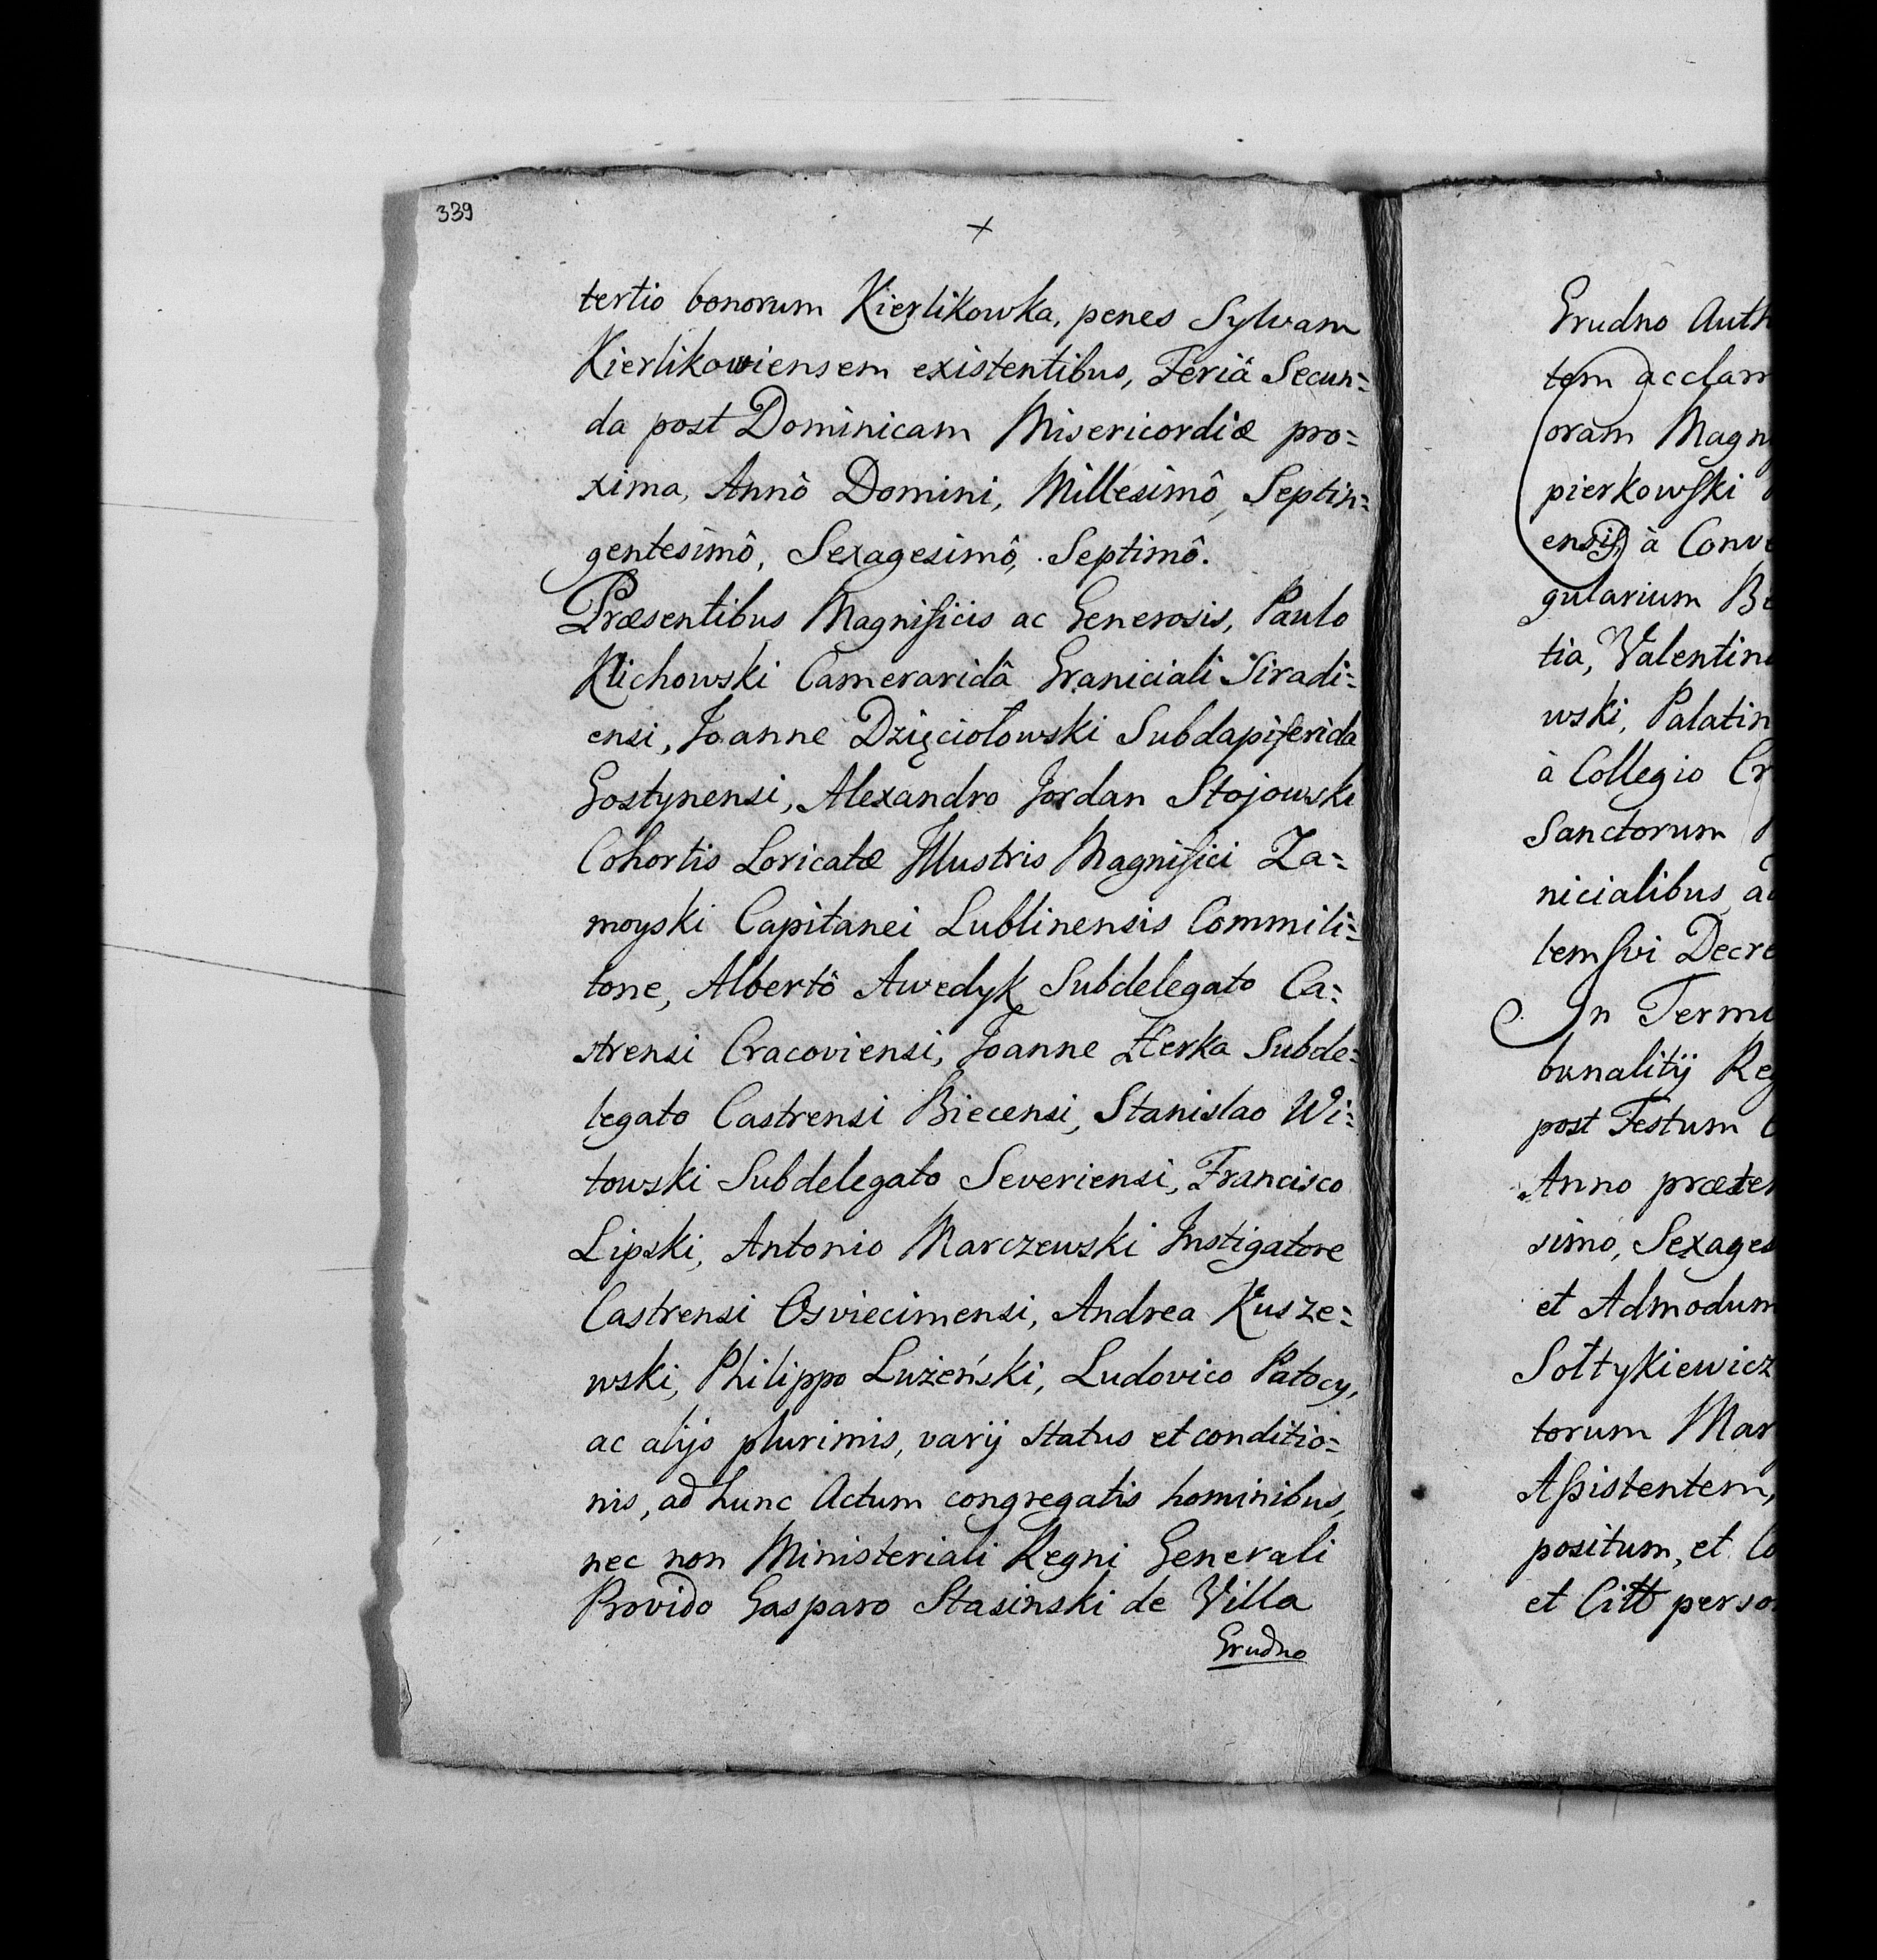 339
+
tertio bonorum Kierlikowka, penes Sylvam
Kierlikowiensem existentibus, Feriâ Secun=
da post Dominicam Misericordiæ pro=
xima, Annô Domini, Millesimô, Septin=
gentesimô, Sexagesimô, Septimô.
Præsentibus Magnificis ac Generosis, Paulo
Klichowski Cameraridâ Graniciali Siradi=
ensi, Joanne Dzięciołowski Subdapiferida
Gostynensi, Alexandro Jordan Stojowski
Cohortis Loricatæ Illustris Magnifici Za=
moyski Capitanei Lublinensis Commili=
tone, Albertô Awedyk Subdelegato Ca=
strensi Cracoviensi, Joanne Żerka Subde=
legato Castrensi Biecensi, Stanislao Wi=
towski Subdelegato Severiensi, Francisco
Lipski, Antonio Marczewski Instigatore
Castrensi Osviecimensi, Andrea Kusze=
wski, Philippo Lużeński, Ludovico Patocy,
ac alijs plurimis, varij status et conditio=
nis, ad hunc Actum congregatis hominibus,
nec non Ministeriali Regni Generali
Provido Gasparo Stasinski de Villa
Grudno
Grudno Auth
tem acclam
oram Magn
pierkowski
ensis, à Conv
gularium Be
tia, Valentin
wski, Palatin
à Collegio Cr
Sanctorum
nicialibus, a
tem sui Decre
In Termi
bunalitij Reg
post Festum
Anno præter
simo, Sexages
et Admodum
Sołtykiewicz
torum Mar
Assistentem,
positum, et Co
et Citt perso